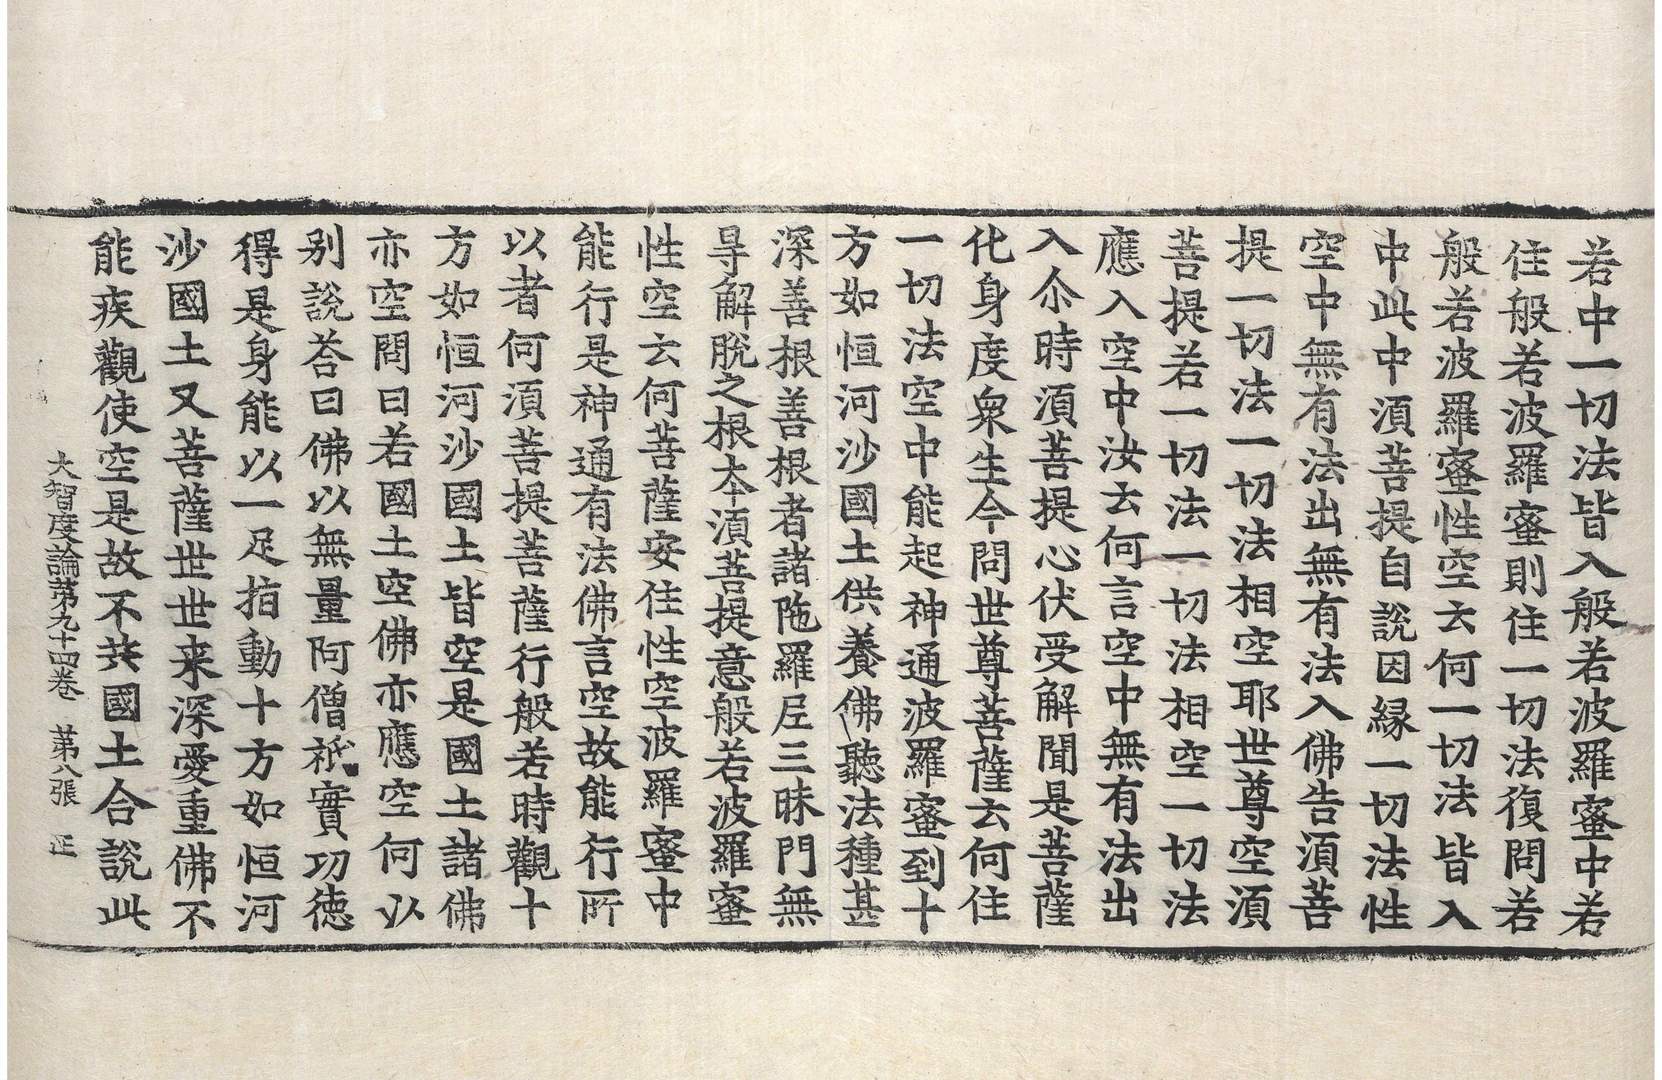 若中一切法皆入般若波羅蜜中若
住般若波羅蜜則住一切法復問若
般若波羅蜜性空云何一切法皆入
中此中湏菩提自說因縁一切法性
空中無有法出無有法入佛告湏菩
提一切法一切法相空耶世尊空湏
菩提若一切法一切法相空一切法
應入空中汝云何言空中無有法出
入尒時湏菩提心伏受解聞是菩薩
化身度衆生今問世尊菩薩云何住
一切法空中能起神通波羅蜜到十
方如恒河沙國土供養佛聽法種甚
深善根善根者諸陁羅尼三昧門無
㝵解脫之根本湏菩提意般若波羅蜜
性空云何菩薩安住性空波羅蜜中
能行是神通有法佛言空故能行所
以者何湏菩提菩薩行般若時觀十
方如恒河沙國土皆空是國土諸佛
亦空問曰若國土空佛亦應空何以
别說荅曰佛以無量阿僧祇實功徳
得是身能以一足指動十方如恒河
沙國土又菩薩世世来深愛重佛不
能疾觀使空是故不共國土合說此
大智度論苐九十四卷　苐八張　正